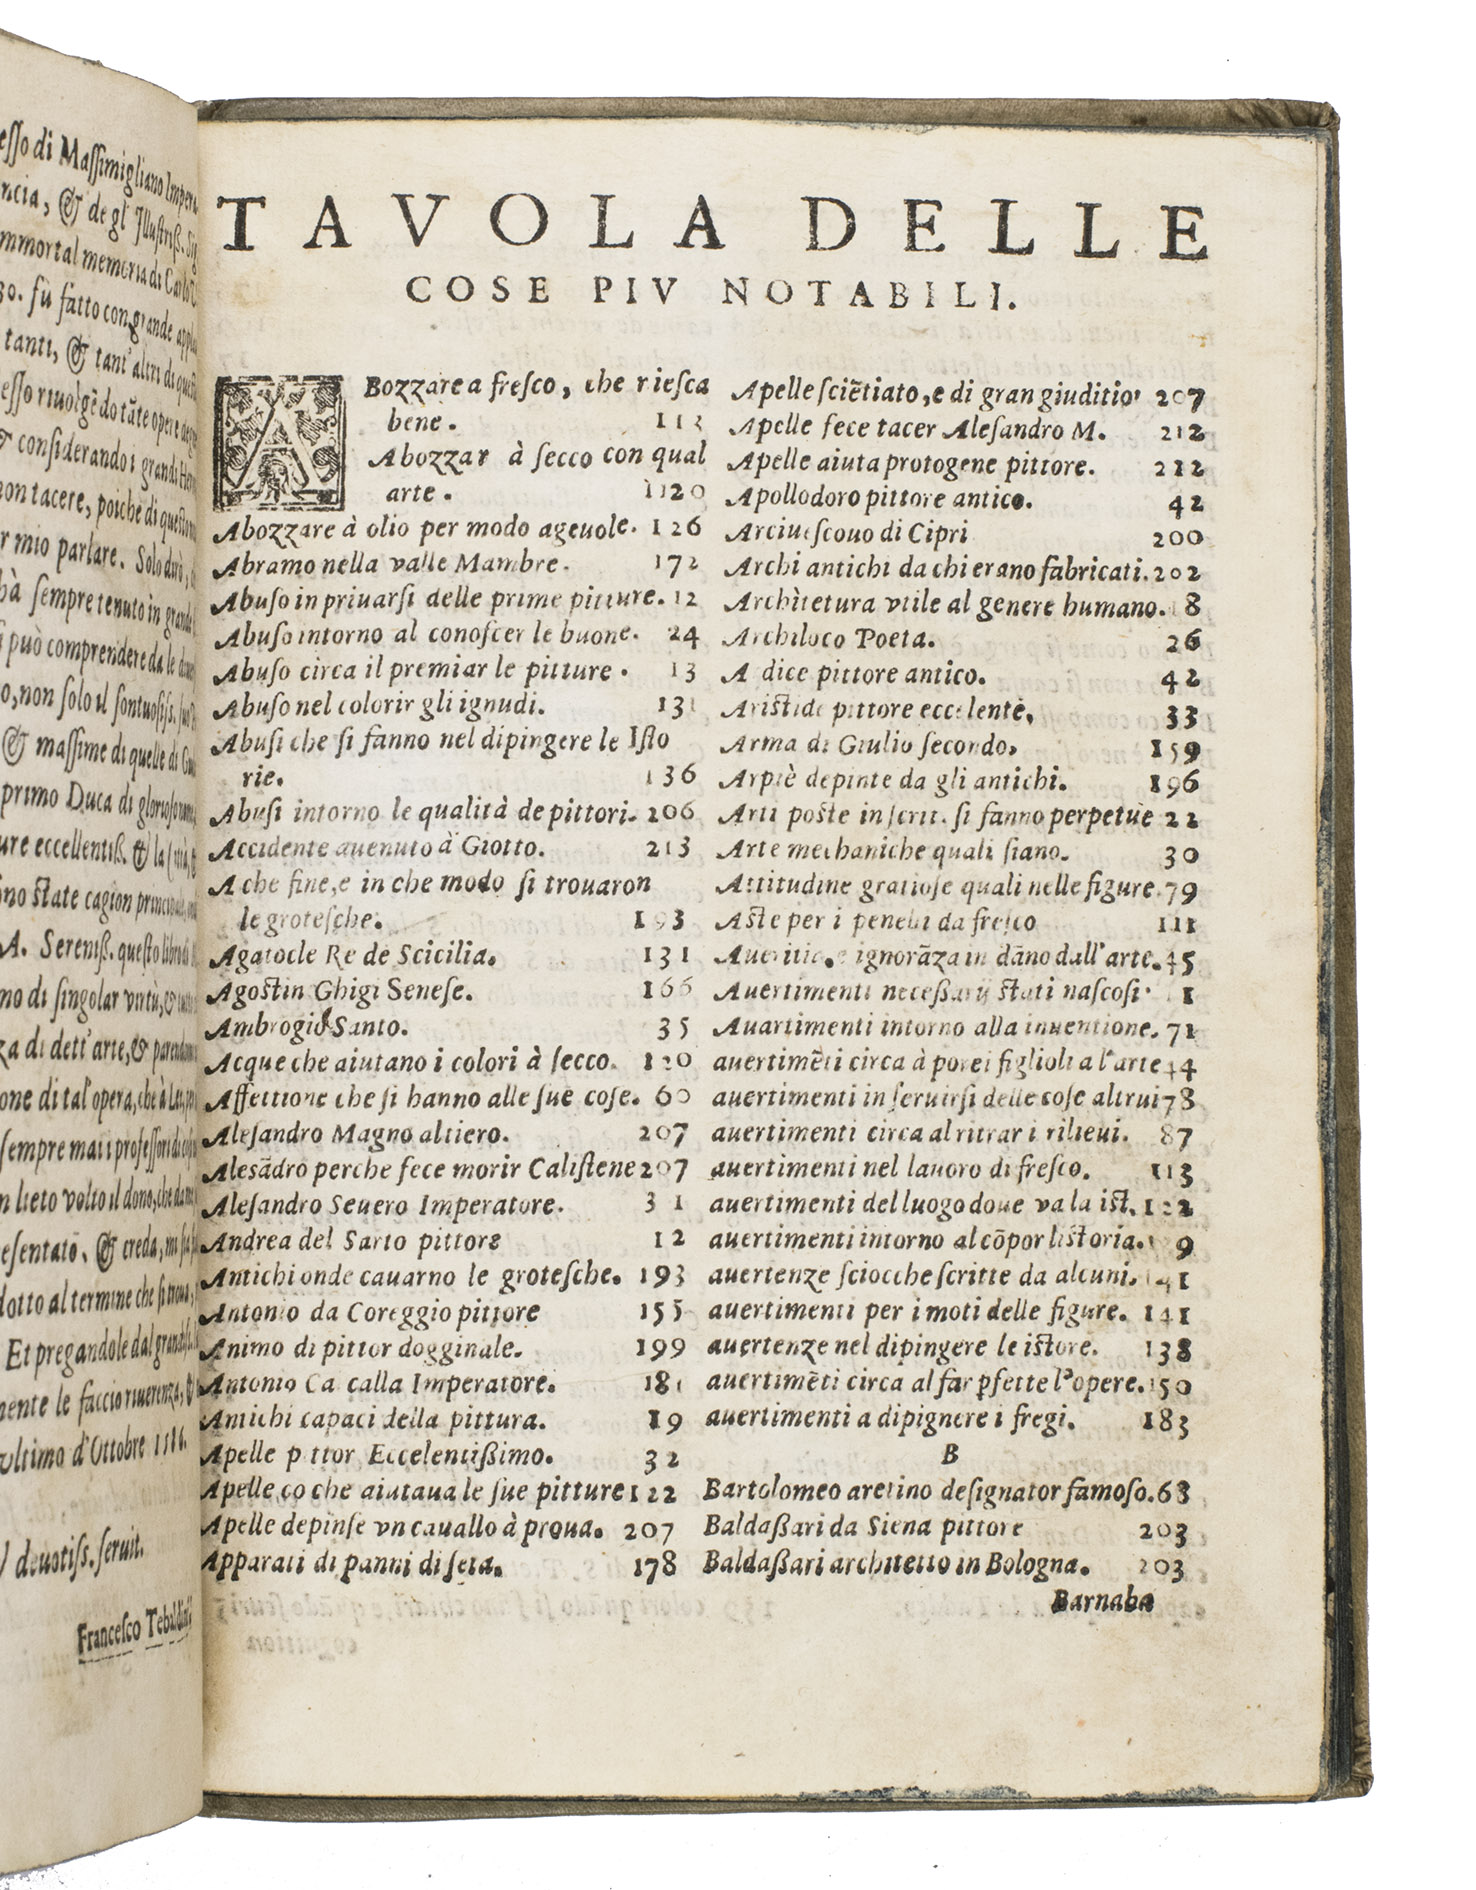 esso di Massimigliano Impera
ncia, & de gl' Illustriss. Sig
mmortal memoria di Carlo
30. fù fatto con grande appla
tanti, & tant'altri di quest
esso riuolgẽdo tãte opere degn
& considerando i grandi Hero
non tacere, poiche di questo
r mio parlare. Solo dirò,
hà sempre tenuto in grande
si può comprendere da le
o, non solo il sontuosiss.
& massime di quelle di Gui
primo Duca di glorioso
ure eccellentiss. & la
no state cagion principal
A. Sereniss. questo libro di
no di singolar virtù, &
za di dett'arte, &
one di tal'opera, che à Lei,
sempre mai i professori di
n lieto volto il dono, che
esentato. & creda,
dotto al termine che si troua,
Et pregandole dal grand
mente le faccio riuerenza, &
vltimo d'Ottobre
deuotiss. seruit.
Francesco Tebaldini
TAVOLA DELLE
COSE PIV NOTABILI.
ABozzare a fresco, che riesca
bene. 113
Abozzar à secco con qual
arte. 1120
Abozzare à olio per modo ageuole. 126
Abramo nella valle Mambre. 172
Abuso in priuarsi delle prime pitture. 12
Abuso intorno al conoscer le buone. 24
Abuso circa il premiar le pitture. 13
Abuso nel colorir gli ignudi. 131
Abusi che si fanno nel dipingere le Isto
rie. 136
Abusi intorno le qualità de pittori. 206
Accidente auenuto à Giotto. 213
A che fine, e in che modo si trouaron
le grotesche. 193
Agatocle Re de Scicilia. 131
Agostin Ghigi Senese. 166
Ambrogio Santo. 35
Acque che aiutano i colori à secco. 120
Affettione che si hanno alle sue cose. 60
Alesandro Magno altiero. 207
Alesãdro perche fece morir Calistene 207
Alesandro Seuero Imperatore. 31
Andrea del Sarto pittore 12
Antichi onde cauarno le grotesche. 193
Antonio da Coreggio pittore 155
Animo di pittor dogginale. 199
Antonio Ca calla Imperatore. 181
Antichi capaci della pittura. 19
Apelle p ttor Eccelentißimo. 32
Apelle co che aiutaua le sue pitture 122
Apelle depinse vn cauallo à proua. 207
Apparati di panni di seta. 178
Apelle sciẽtiato, e di gran giuditio 207
Apelle fece tacer Alesandro M. 212
Apelle aiuta protogene pittore. 212
Apollodoro pittore antico. 42
Arciuescouo di Cipri 200
Archi antichi da chi erano fabricati. 202
Archìtetura vtile al genere humano. 18
Archiloco Poeta. 26
A dice pittore antico. 42
Aristide pittore eccelente, 33
Arma di Giulio secondo, 159
Arpiè depinte da gli antichi. 196
Arti poste in scrit. si fanno perpetue 22
Arte mechaniche quali siano. 30
Attitudine gratiose quali nelle figure. 79
Aste per i penelli da fresco 111
Aueritia, e ignorãza in dãno dall'arte. 45
Auertimenti neceßarij stati nascosi 1
Auartimenti intorno alla inuentione. 71
auertimẽti circa à porei figlioli a l'arte 44
auertimenti in seruirsi delle cose altrui 78
auertimenti circa al ritrar i rilieui. 87
auertimenti nel lauoro di fresco. 113
auertimenti del luogo doue va la ist. 122
auertimenti intorno al cõpor listoria. 9
auertenze sciocche scritte da alcuni. 141
auertimenti per i moti delle figure. 141
auertenze nel dipingere le istore. 138
auertimẽti circa al far pfette l'opere. 150
auertimenti a dipignere i fregi. 183
B
Bartolomeo aretino designator famoso. 68
Baldaßari da Siena pittore 203
Baldaßari architetto in Bologna. 203
Barnaba